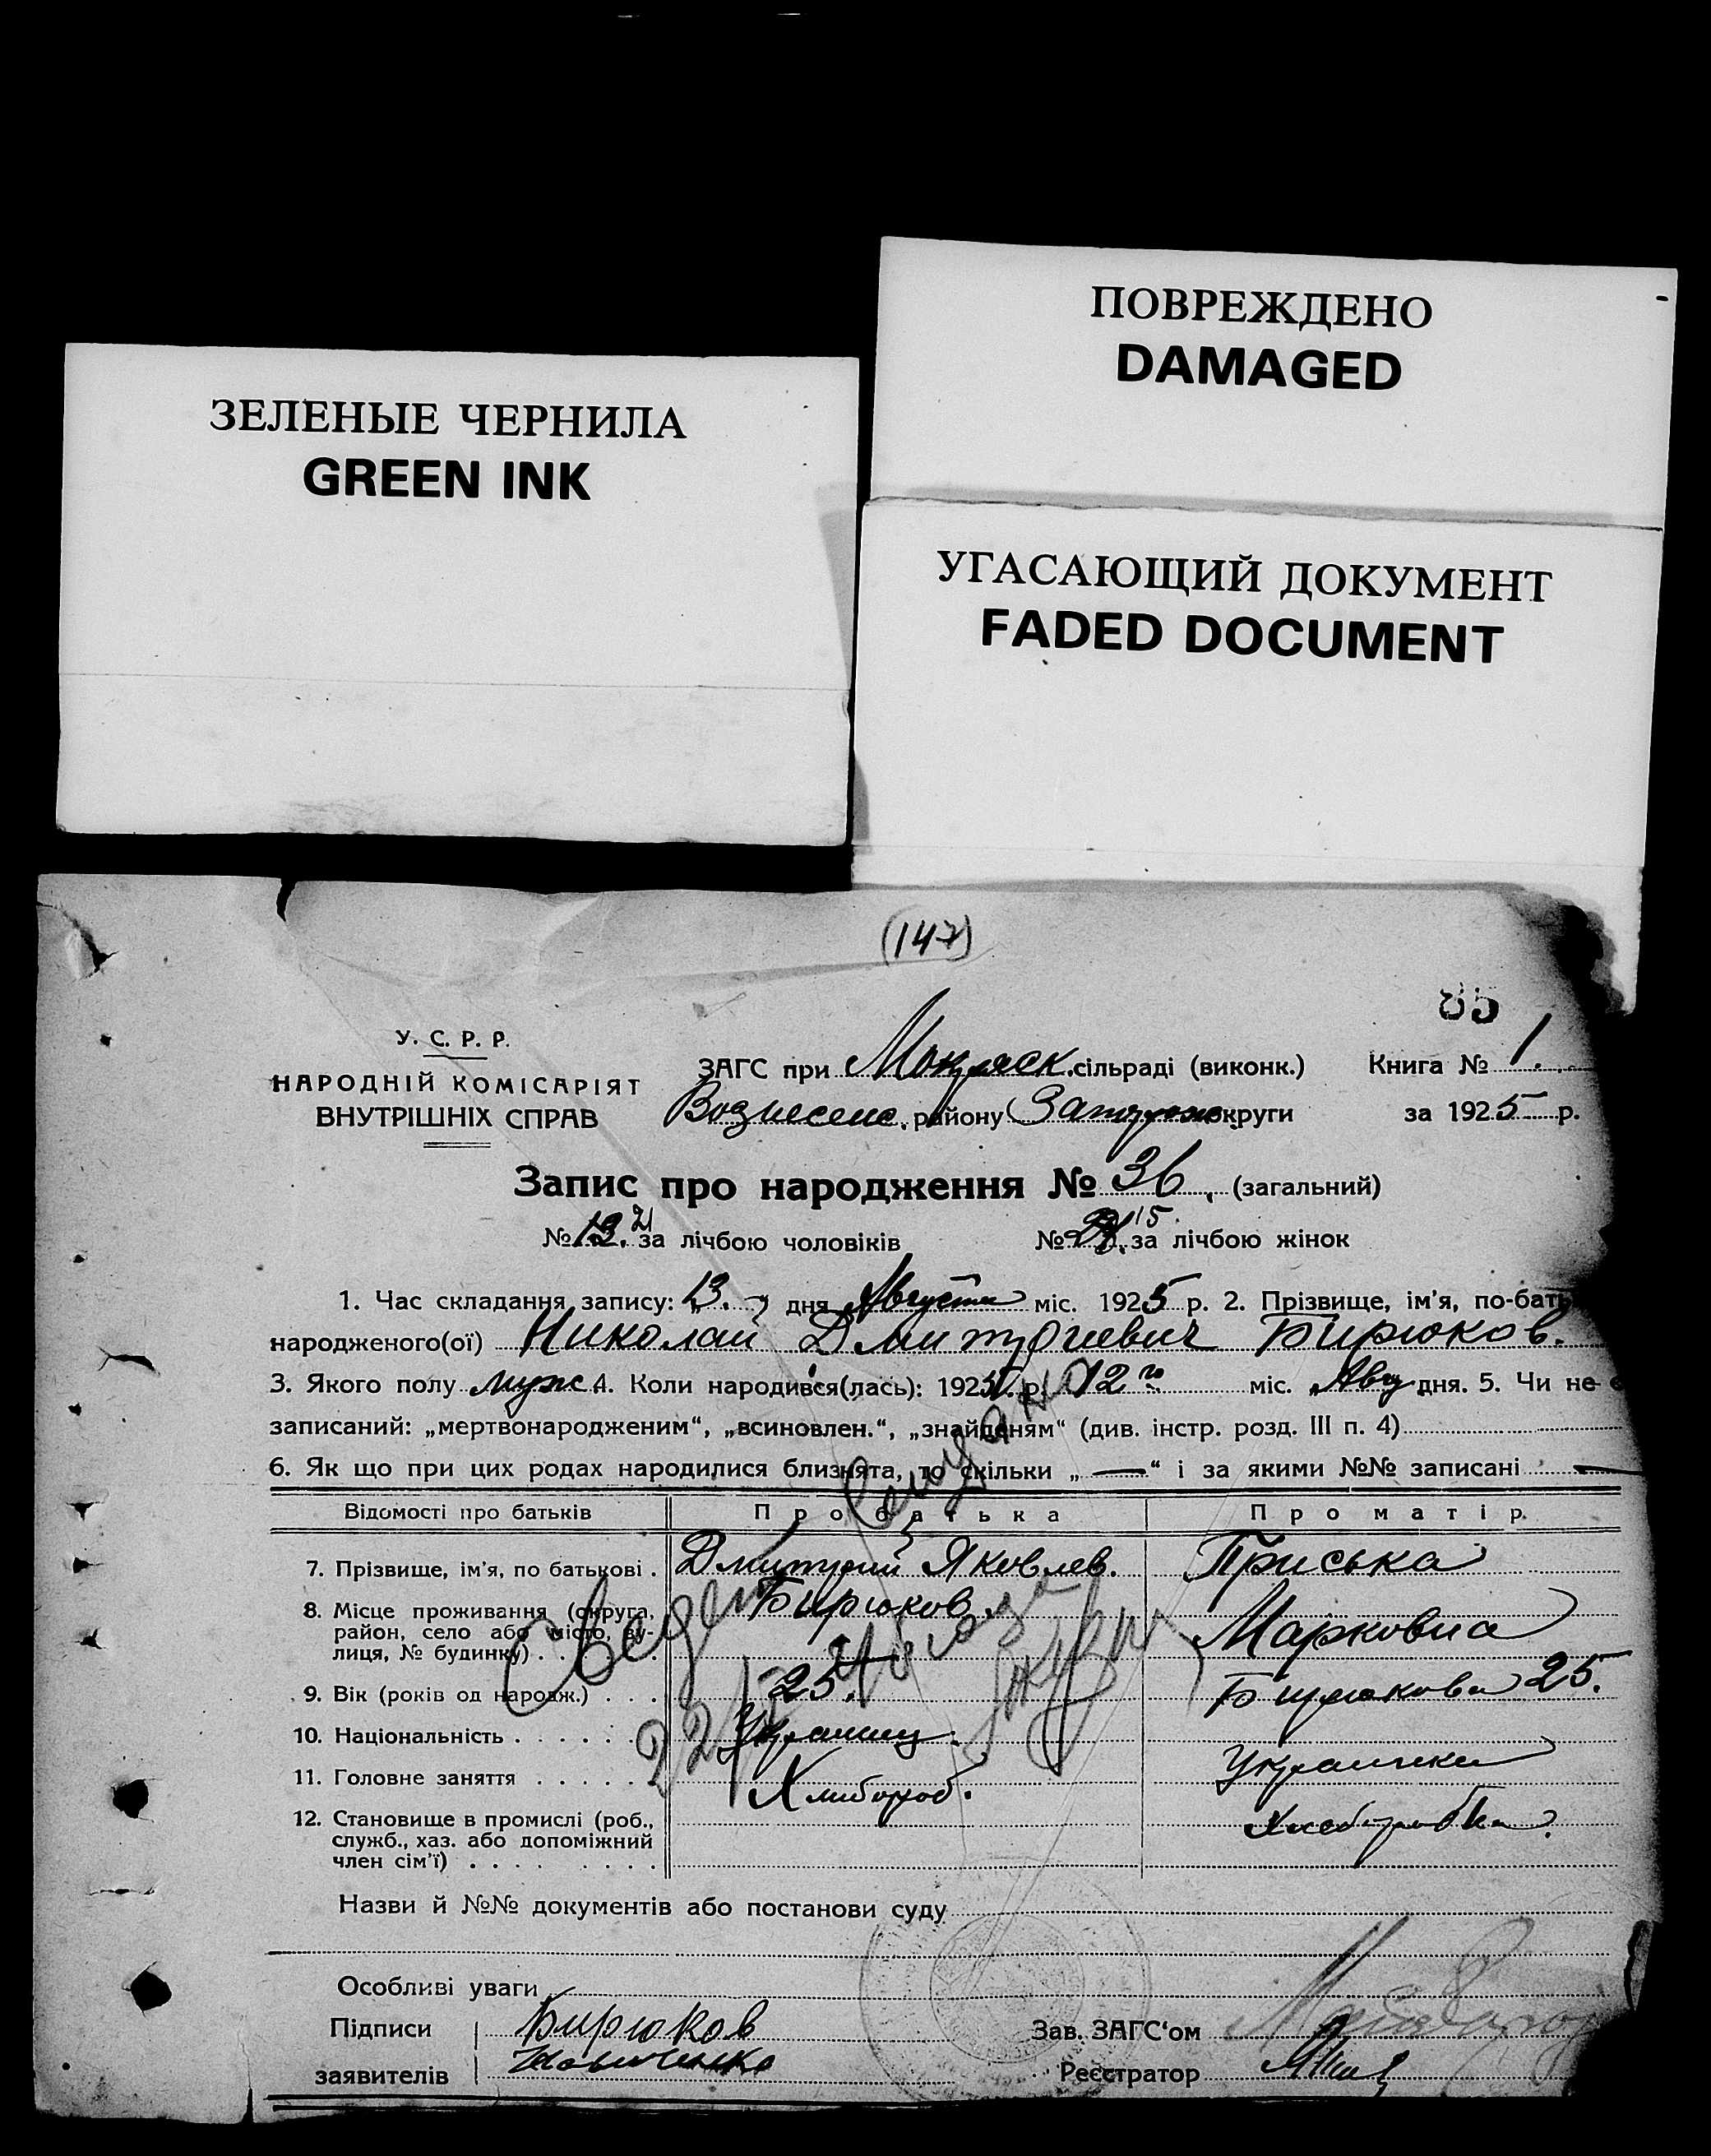 ПОВРЕЖДЕНО
DAMAGED
ЗЕЛЕНЫЕ ЧЕРНИЛА
GREEN INK
УГАСАЮЩИЙ ДОКУМЕНТ
FADED DOCUMENT
(147)
85
У. С. Р. Р.
НАРОДНІЙ КОМІСАРІЯТ
ВНУТРІШНІХ СПРАВ
ЗАГС при Мокрянск. сільраді (виконк.) Книга № 1.
Вознесенс. району Запорож. округи за 1925 р.
Запис про народження № 36. (загальний)
№ 13. 21 за лічбою чоловіків № 15. за лічбою жінок
1. Час складання запису: „13. " дня Августа міс. 1925 р. 2. Прізвище, ім'я, по-бат
народженого(ої) Николай Дмитриевич Бирюков.
3. Якого полу муж. 4. Коли народився(лась): 1925 р. 12го міс. Авгу дня. 5. Чи не є
записаний: „мертвонародженим“, „всиновлен.“, „знайденям“ (див. інстр. розд. III п. 4)
6. Як що при цих родах народилися близнята, то скільки „ — “ і за якими №№ записані —
Відомості про батьків Про батька Про матір
7. Прізвище, ім'я, по батькові . Дмитрий Яковлев. Приська
8. Місце проживання (округа, Бирюков.
район, село або місто, ву- Марковна
лиця, № будинку) . .
9. Вік (років од народж.) . . . 25. Бирюкова 25.
10. Національність . . . . . . Украинец. Украинка
11. Головне заняття . . . . . . Хлибороб.
12. Становище в промислі (роб., Хлеборобка.
служб., хаз. або допоміжний
член сім'ї) . . . . . . . .
Назви й №№ документів або постанови суду
Особливі уваги
Підписи Бирюков Зав. ЗАГС‘ом
заявителів Реєстратор